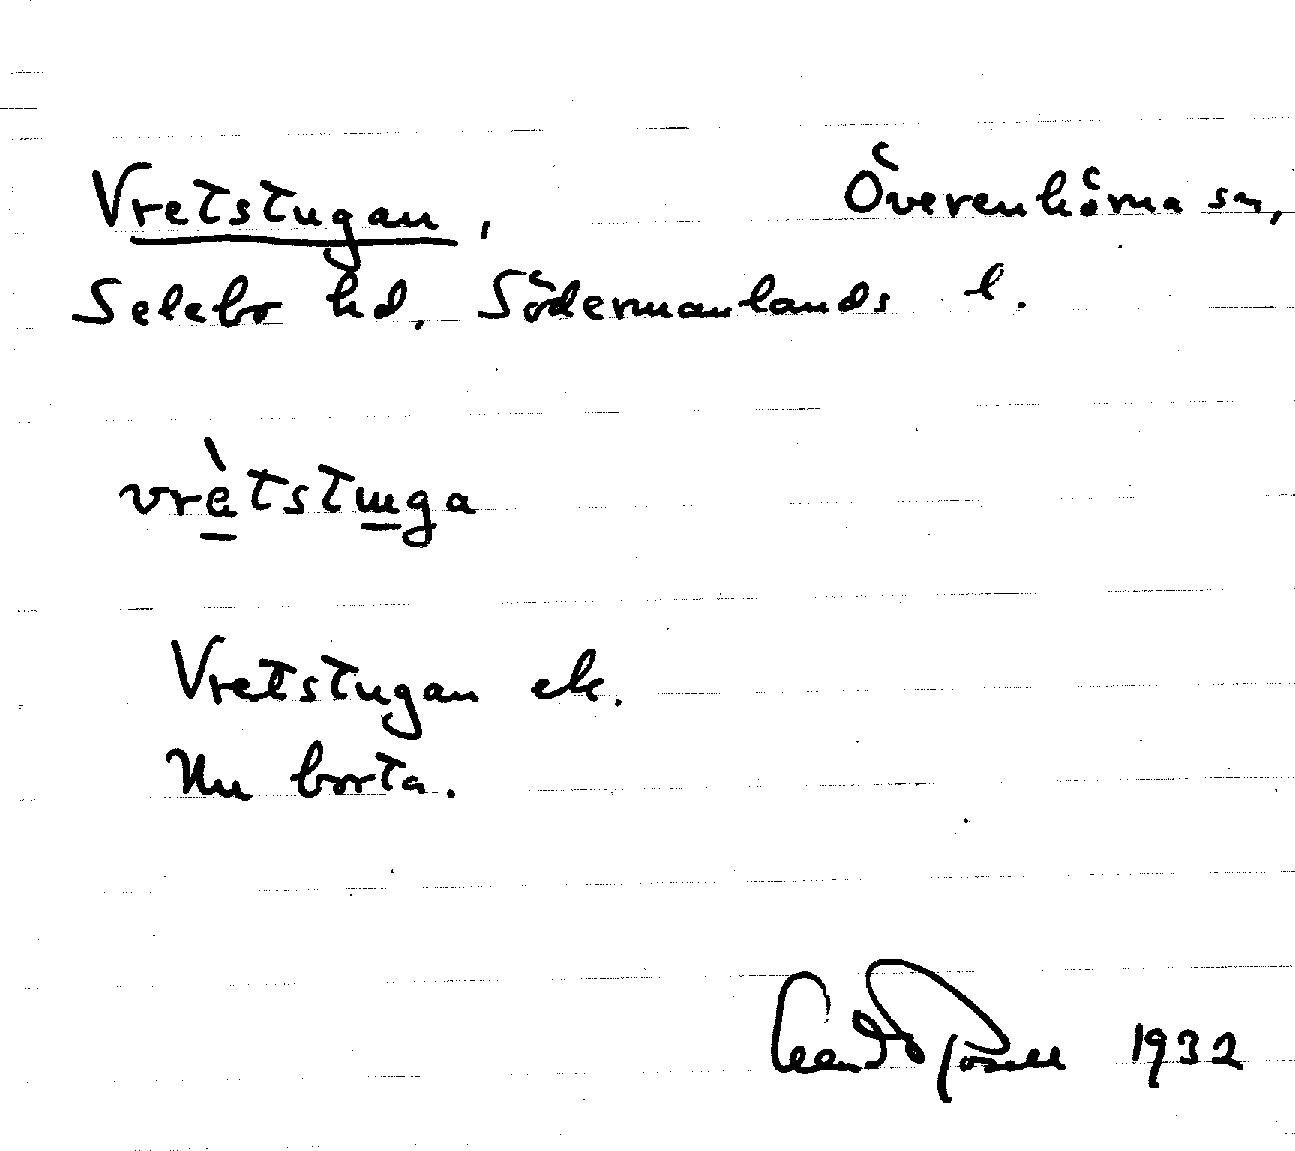 Vretstugan, Överenhörna sn,
Selebo hd, Södermanlands l.
vrètstuga
Vretstugan ek.
Nu borta.
1932